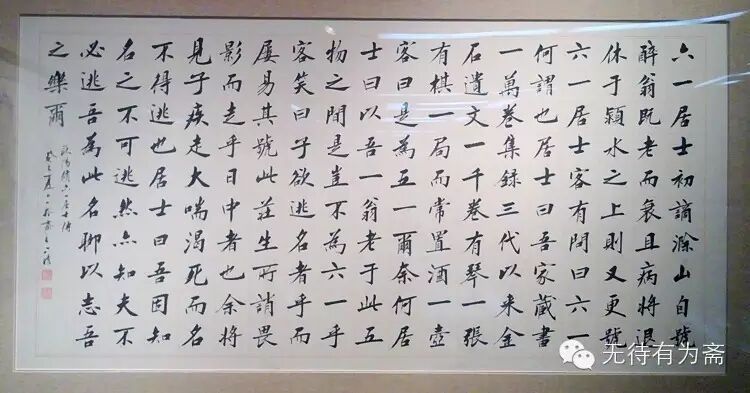 六一居士初謫滁山自號
醉翁既老而衰且病將退
休于潁水之上則又更號
六一居士客有問曰六一
何謂也居士曰吾家藏書
一萬卷集錄三代以来金
石遺文一千卷有琴一張
有棋一局而常置酒一壺
客曰是為五一爾奈何居
士曰以吾一翁老于此五
物之間是豈不為六一乎
客笑曰子欲逃名者乎而
屢易其號此莊生所誚畏
影而走乎日中者也余將
見子疾走大喘渴死而名
不得逃也居士曰吾固知
名之不可逃然亦知夫不
必逃吾為此名聊以志吾
之樂爾
歐陽修六一居士傳
无待有为斋